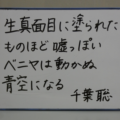 生真面目に塗られた
ものほど嘘っぽい
ペニマは動かぬ
青空になる
千葉聡